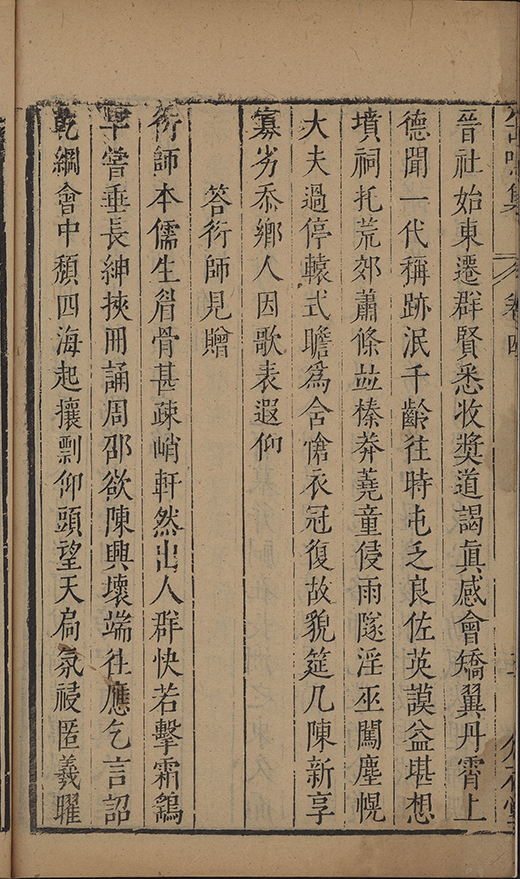 晉社始東遷群賢悉收獎道謁眞感會矯翼丹霄上
德聞一代稱跡泯千齡往時屯乏良佐英謨益堪想
墳祠托荒郊蕭條並榛莽蕘童侵雨隧淫巫闖塵幌
大夫過停轅式瞻爲含愴衣冠復故貌筵几陳新享
寡劣忝鄉人因歌表遐仰
答衍師見贈
衍師本儒生眉骨甚疎峭軒然出人群快若擊霜鷂
早嘗垂長紳挾冊誦周邵欲陳興壞端往應乞言詔
乾綱會中頹四海起攘剽仰頭望天扃氛祲匿羲曜